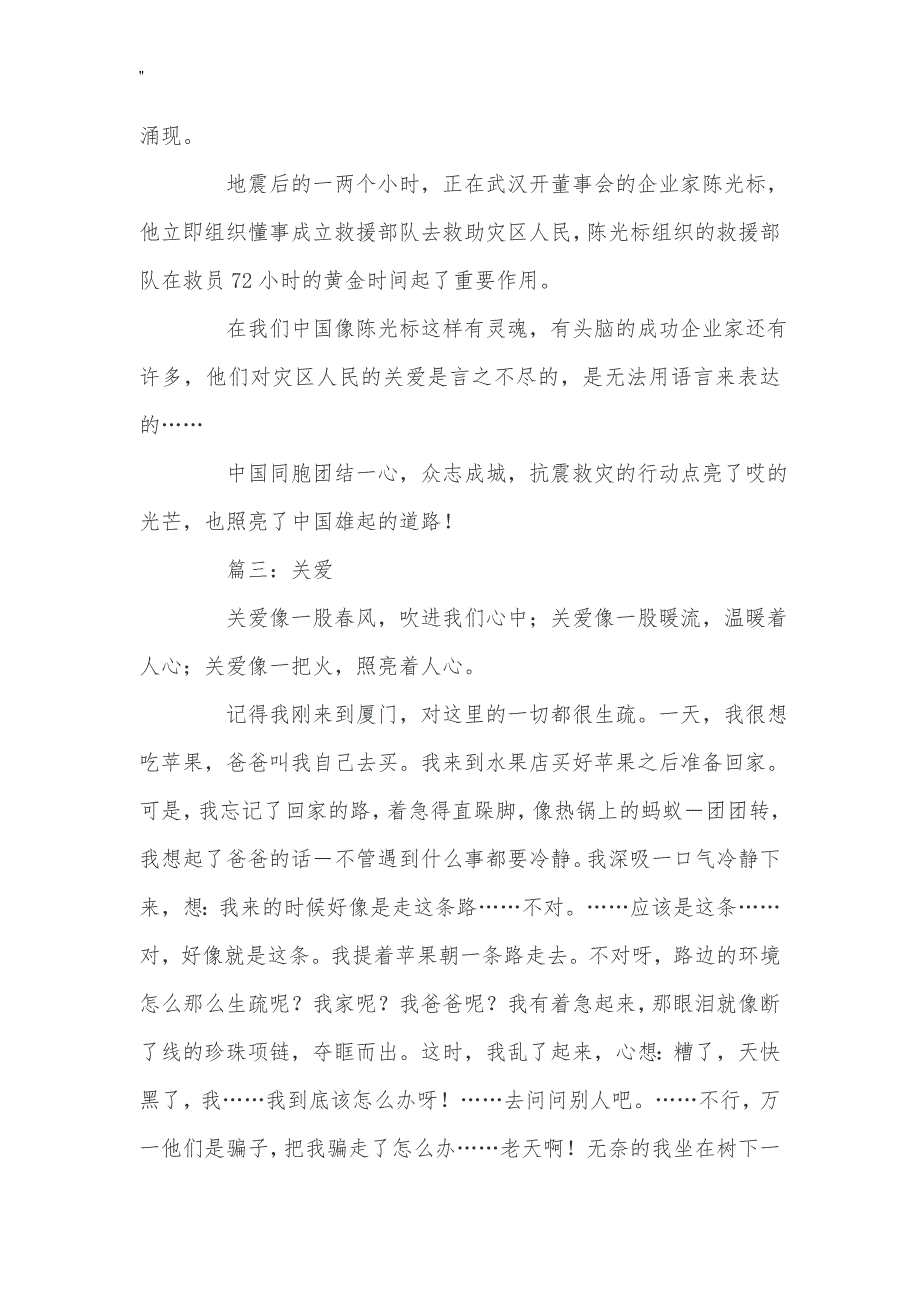 "
涌现。
地震后的一两个小时，正在武汉开董事会的企业家陈光标，
他立即组织懂事成立救援部队去救助灾区人民，陈光标组织的救援部
队在救员 72 小时的黄金时间起了重要作用。
在我们中国像陈光标这样有灵魂，有头脑的成功企业家还有
许多，他们对灾区人民的关爱是言之不尽的，是无法用语言来表达
的……
中国同胞团结一心，众志成城，抗震救灾的行动点亮了哎的
光芒，也照亮了中国雄起的道路！
篇三：关爱
关爱像一股春风，吹进我们心中；关爱像一股暖流，温暖着
人心；关爱像一把火，照亮着人心。
记得我刚来到厦门，对这里的一切都很生疏。一天，我很想
吃苹果，爸爸叫我自己去买。我来到水果店买好苹果之后准备回家。
可是，我忘记了回家的路，着急得直跺脚，像热锅上的蚂蚁－团团转，
我想起了爸爸的话－不管遇到什么事都要冷静。我深吸一口气冷静下
来，想：我来的时候好像是走这条路……不对。……应该是这条……
对，好像就是这条。我提着苹果朝一条路走去。不对呀，路边的环境
怎么那么生疏呢？我家呢？我爸爸呢？我有着急起来，那眼泪就像断
了线的珍珠项链，夺眶而出。这时，我乱了起来，心想：糟了，天快
黑了，我……我到底该怎么办呀！……去问问别人吧。……不行，万
一他们是骗子，把我骗走了怎么办……老天啊！无奈的我坐在树下一